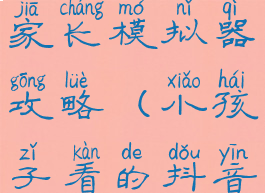 jiā cháng mó nǐ qì
家长模拟器
gōng lüè xiǎo hái
攻略（小孩
zǐ kàn de dǒu yīn
子看的抖音